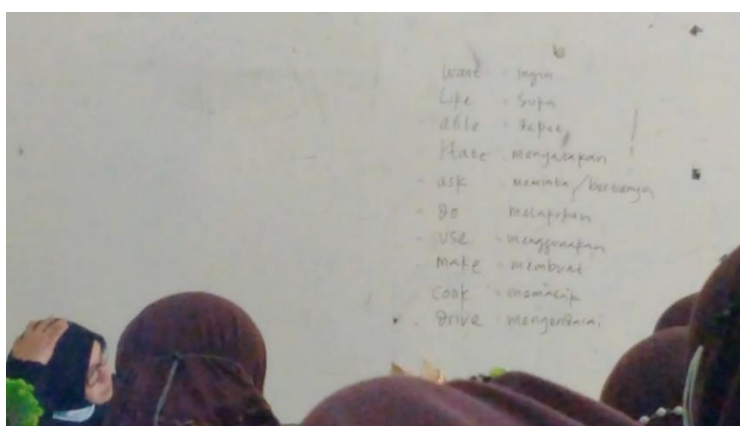 want - ingin
Like - Supa
- able - dapat
State - menyatakan
- ask meminta/bertanya
- do melakukan
- use - menggunakan
- make - membuat
cook - memasak
- Drive - mengendarai